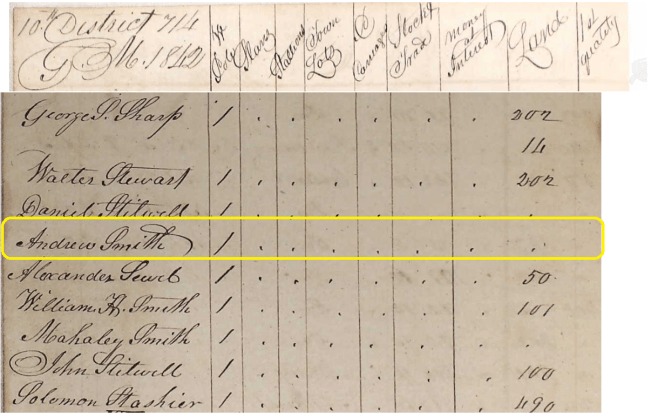 10th District 714
G M. 1842
W Pole
Slaves
Stallions
Town Lots
C Carriages
Stock Trade
Money at Interest
Land
1st quality
George S. Sharp 1 . . . . . . 202
14
Walter Stewart 1 . . . . . . 202
Daniel Stilwell 1 . . . . . . .
Andrew Smith 1 . . . . . . .
Alexander 1 . . . . . . 50
William H. Smith 1 . . . . . . 101
Mahaley Smith 1 . . . . . . .
John Stilwell 1 . . . . . . 100
Solomon 1 . . . . . . 490